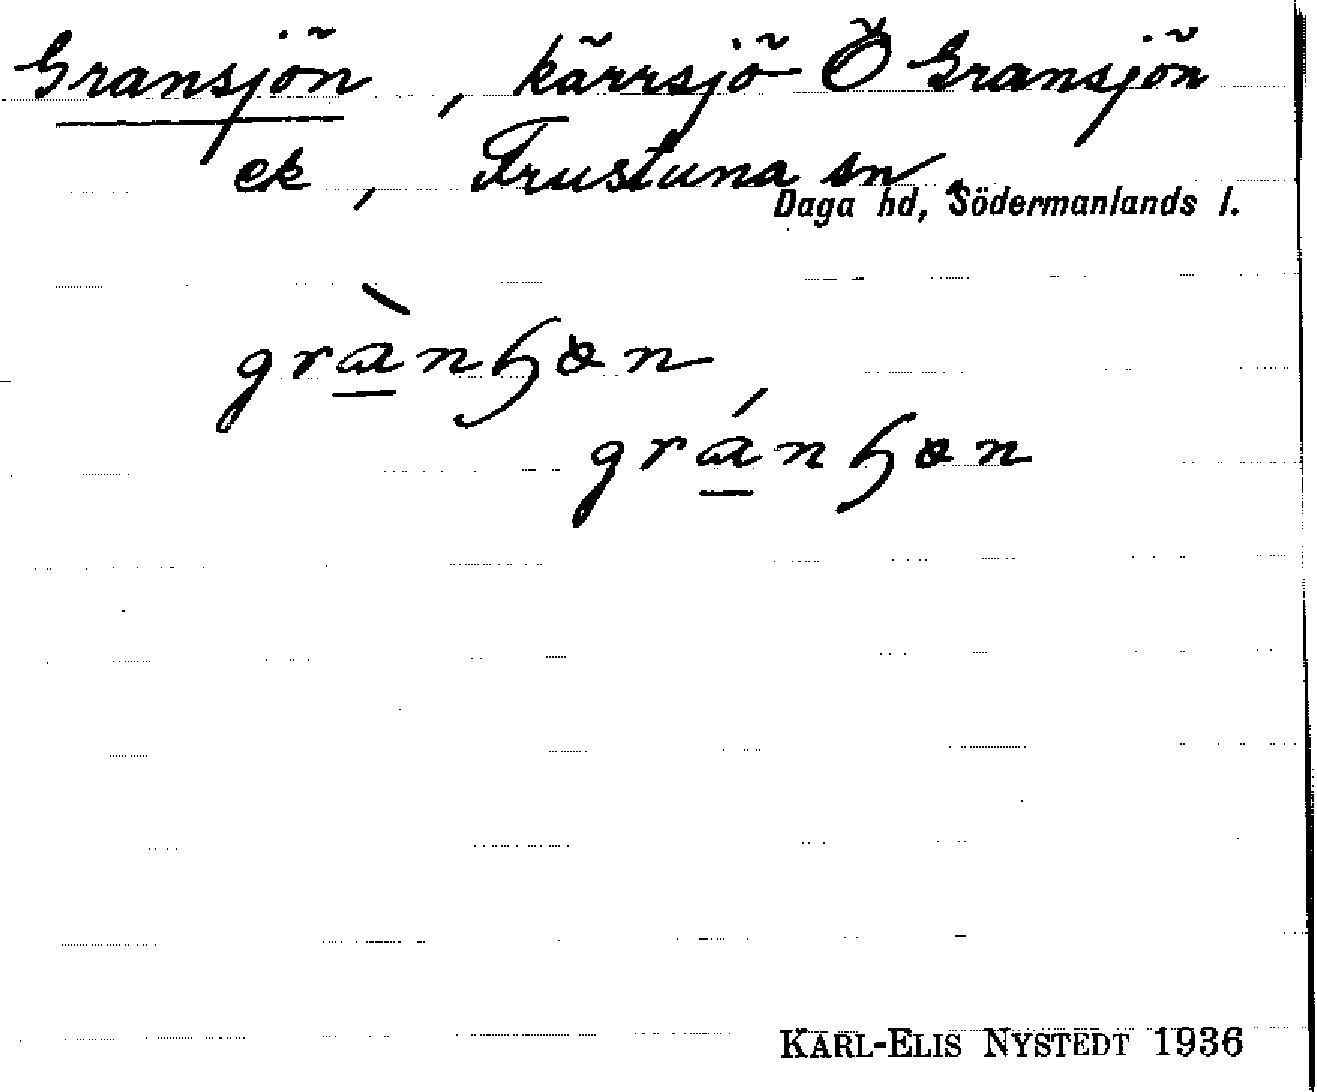 Gransjön, kärrsjö Ö Gransjön
ek, Frustuna sn,
Daga hd, Södermanlands l.
grànɧɷn
gránɧɷn
KARL-ELIS NYSTEDT 1936